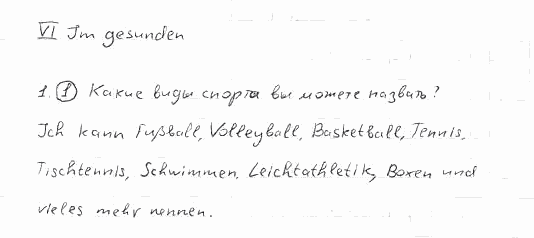 VI Im gesunden
1. ① Какие виды спорта вы можете назвать?
Ich kann Fußball, Volleyball, Basketball, Tennis,
Tischtennis, Schwimmen, Leichtathletik, Boxen und
vieles mehr nennen.